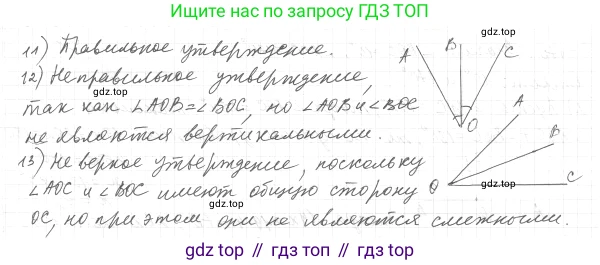 Ищите нас по запросу ГДЗ ТОП
gdz.top
11) Правильное утверждение.
12) Неправильное утверждение,
так как ∠AOB=∠BOC, но ∠AOB и ∠BOC
не являются вертикальными.
13) Неверное утверждение, поскольку
∠AOC и ∠BOC имеют общую сторону
OC, но при этом они не являются смежными.
A
B
C
O
gdz.top
A
B
C
O
gdz.top
gdz.top
gdz.top
gdz top // гдз топ // gdz top